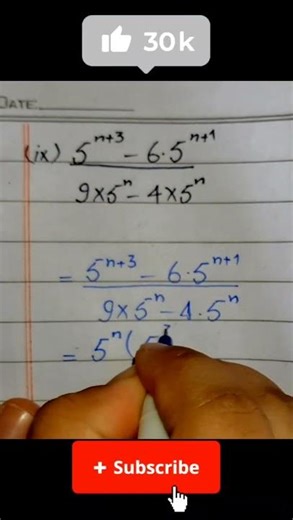 30k
DATE:
(ix) 5^{n+3} - 6·5^{n+1}
9×5^n - 4×5^n
= 5^{n+3} - 6·5^{n+1}
9×5^n - 4·5^n
= 5^n (5^3
+ Subscribe